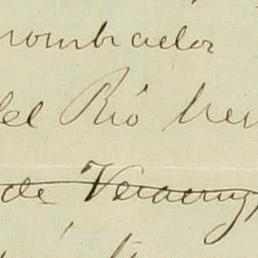 nombrador
del Rio
de Veracruz,